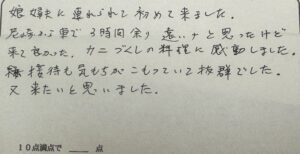 娘婿に連れられて初めて来ました。
尼崎から車で3時間余り遠いナと思ったけど
来て良かった。カニづくしの料理に感動しました。
接待も気もちがこもっていて抜群でした。
又来たいと思いました。
10点満点で 点